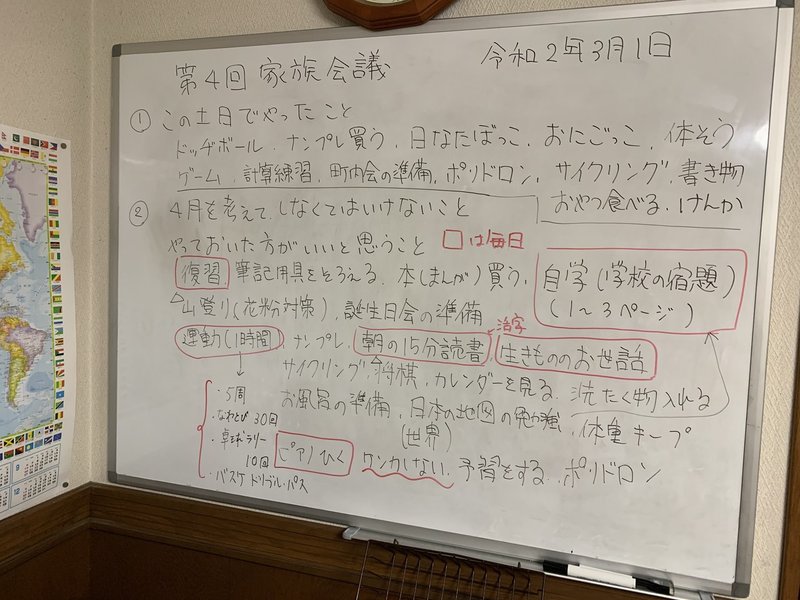 第4回 家族会議 令和2年3月1日
① この土日でやったこと
ドッヂボール、ナンプレ買う、日なたぼっこ、おにごっこ、体そう
ゲーム、計算練習、町内会の準備、ポリドロン、サイクリング、書き物
おやつ食べる、けんか
② 4月を考えて、しなくてはいけないこと
やっておいた方がいいと思うこと □は毎日
復習 筆記用具をそろえる、本(まんが)買う、
自学(学校の宿題)
(1〜3ページ)
山登り(花粉対策)、誕生日会の準備
運動(1時間)、ナンプレ、朝の15分読書、生きもののお世話
活字
サイクリング、将棋、カレンダーを見る、洗たく物入れる
お風呂の準備、日本の地図の勉強、体重キープ
(世界)
・5周
・なわとび30回
・卓球ラリー
10回
・バスケ ドリブル・パス
ピアノひく ケンカしない、予習をする、ポリドロン
9
12